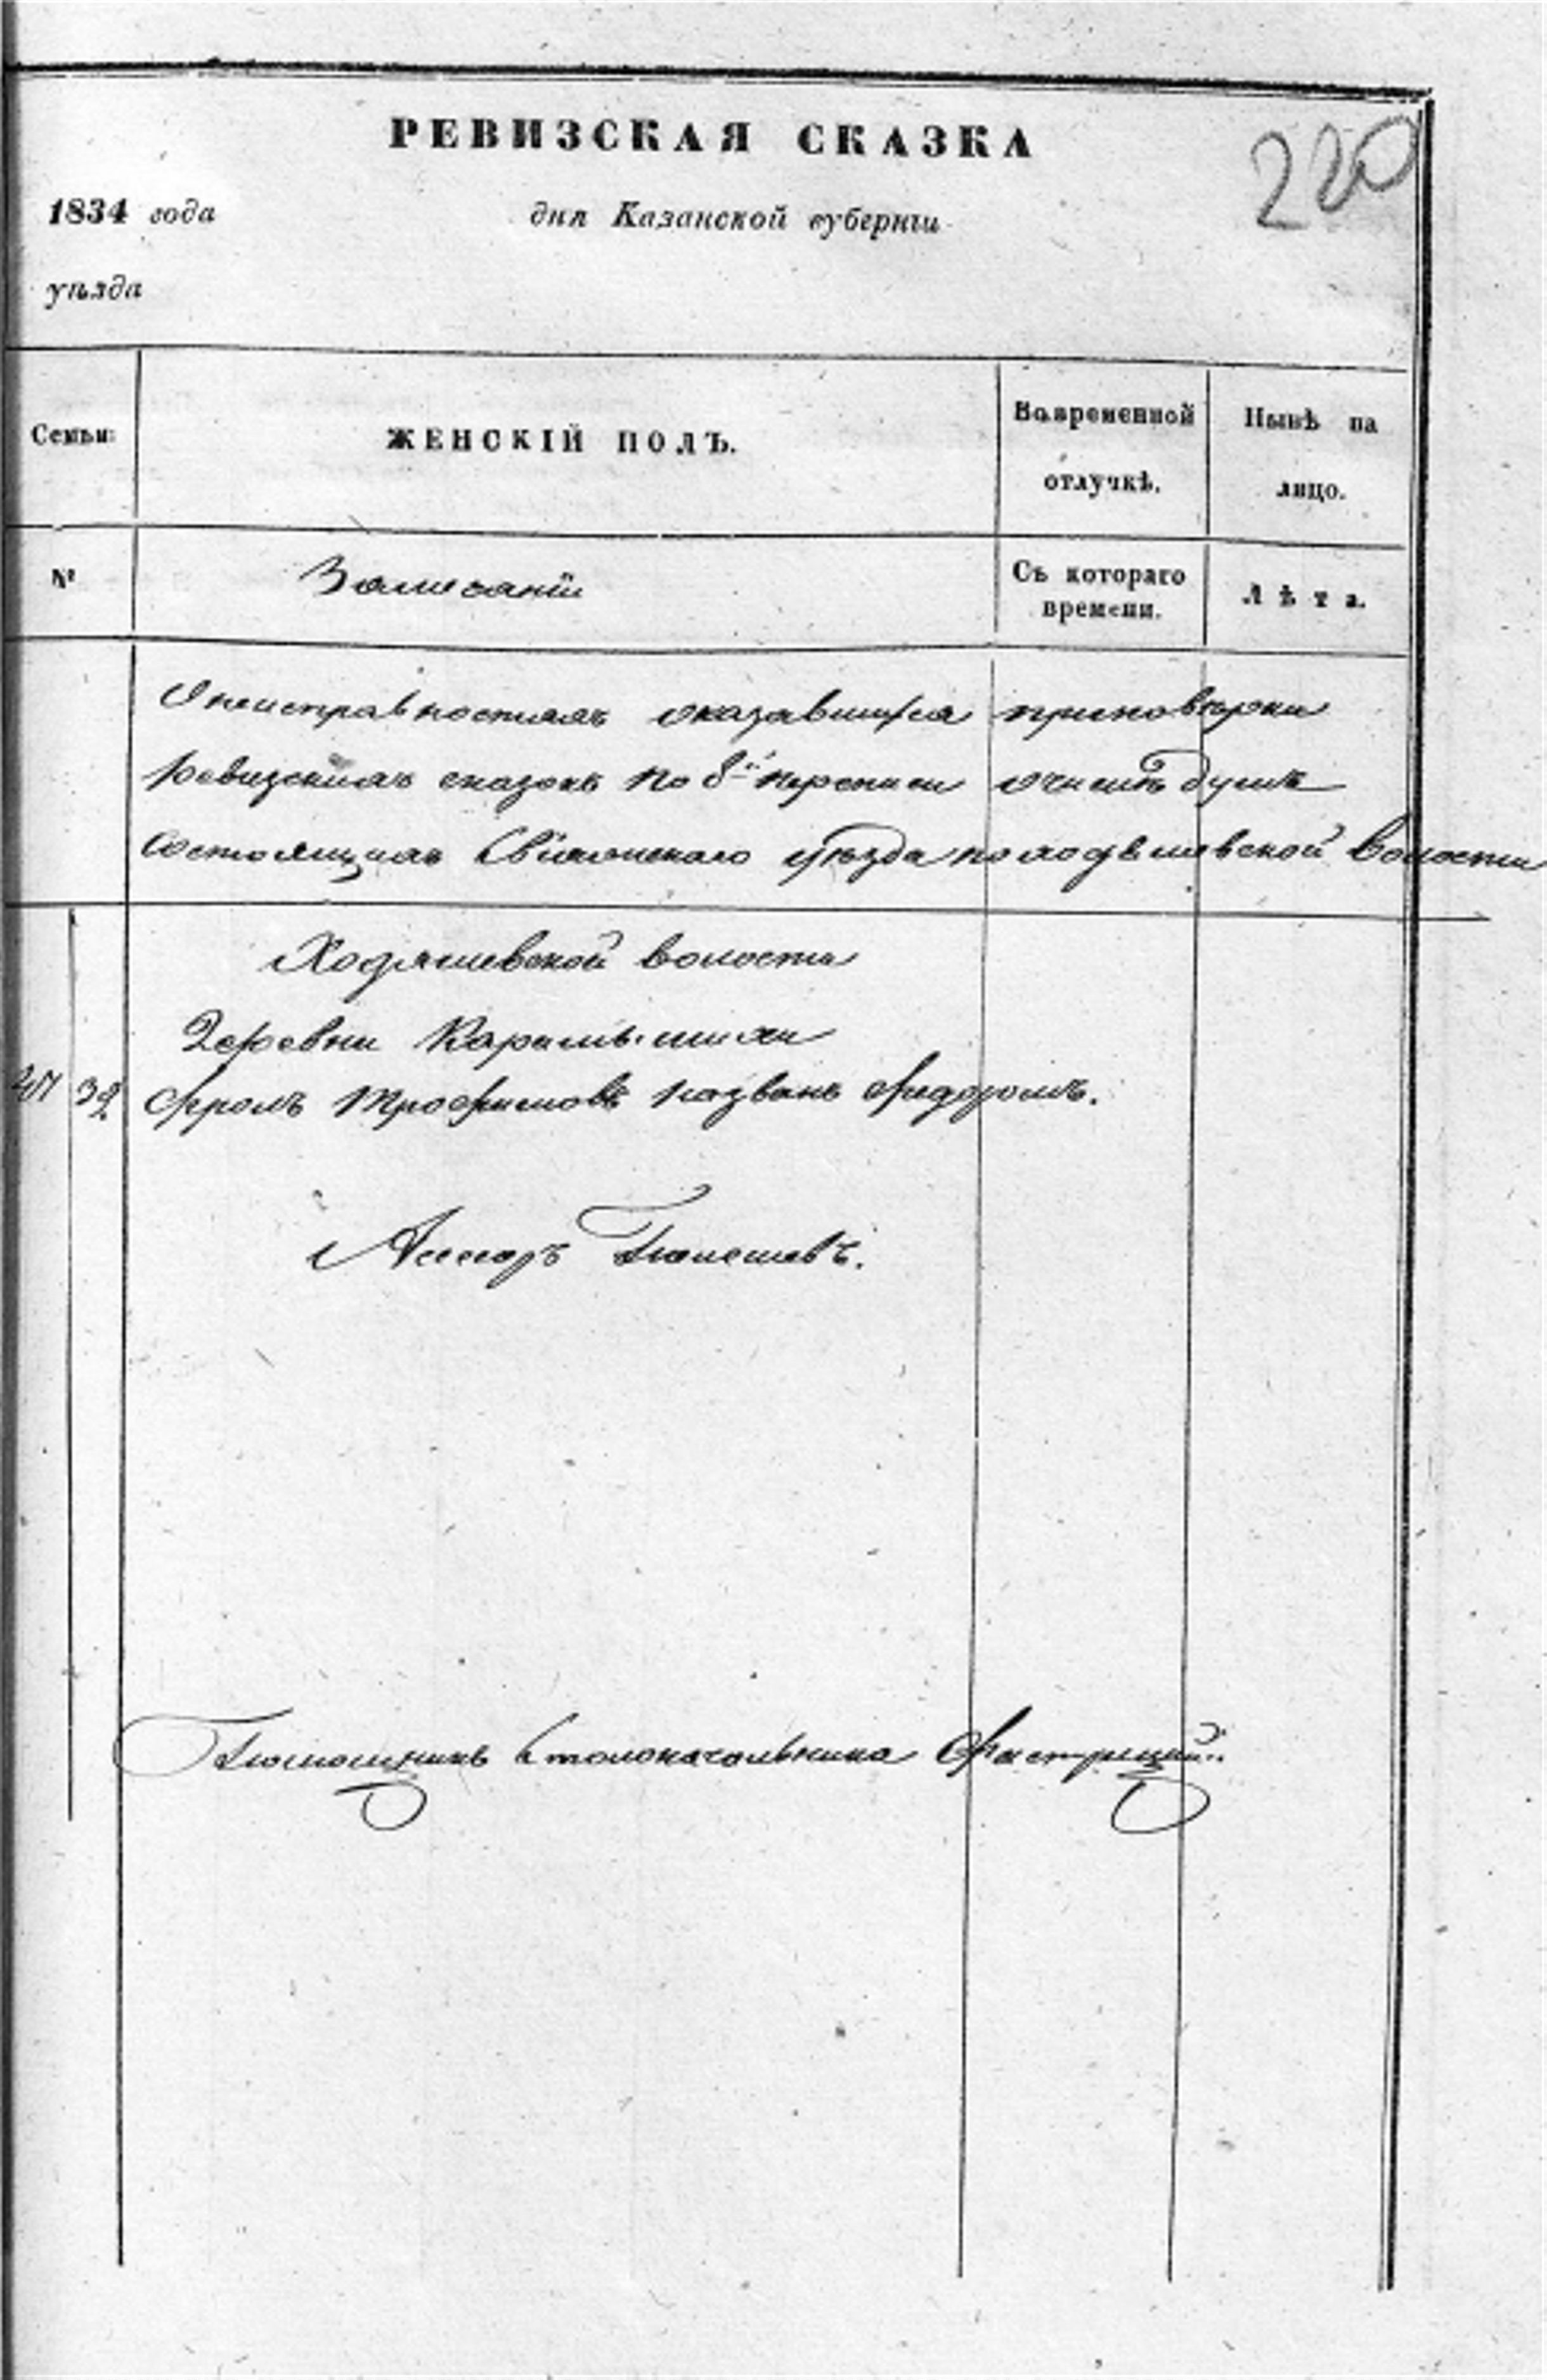 РЕВИЗСКАЯ СКАЗКА
220
1834 года дня Казанской губернiи
уѣзда
Семьи: ЖЕНСКІЙ ПОЛЪ. Во временной отлучкѣ. Нынѣ на лицо.
№ Замечанiи Съ котораго времени. Лѣта.
О неисправностяхъ оказавшихся приповѣрки
Ревизскихъ сказокъ по 8й переписи очисле душъ
состоящихъ Свіяжскаго уѣзда по ходяшевской волости
Ходяшевской волости
Деревни Карамышихи
32 Фролъ Трофимовъ названъ Федоромъ.
Асессоръ
Помощникъ Столоначальника